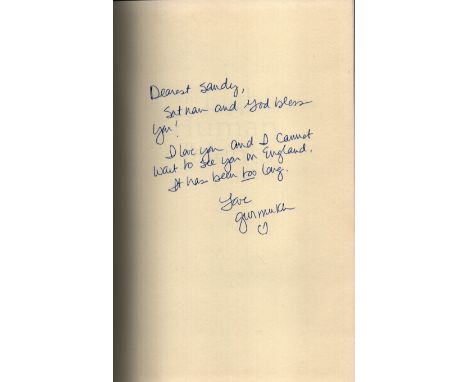 Dearest Sandy,
Sat nam and God bless
you!
I love you and I cannot
wait to see you in England.
It has been too long.
Love
Gurmukh